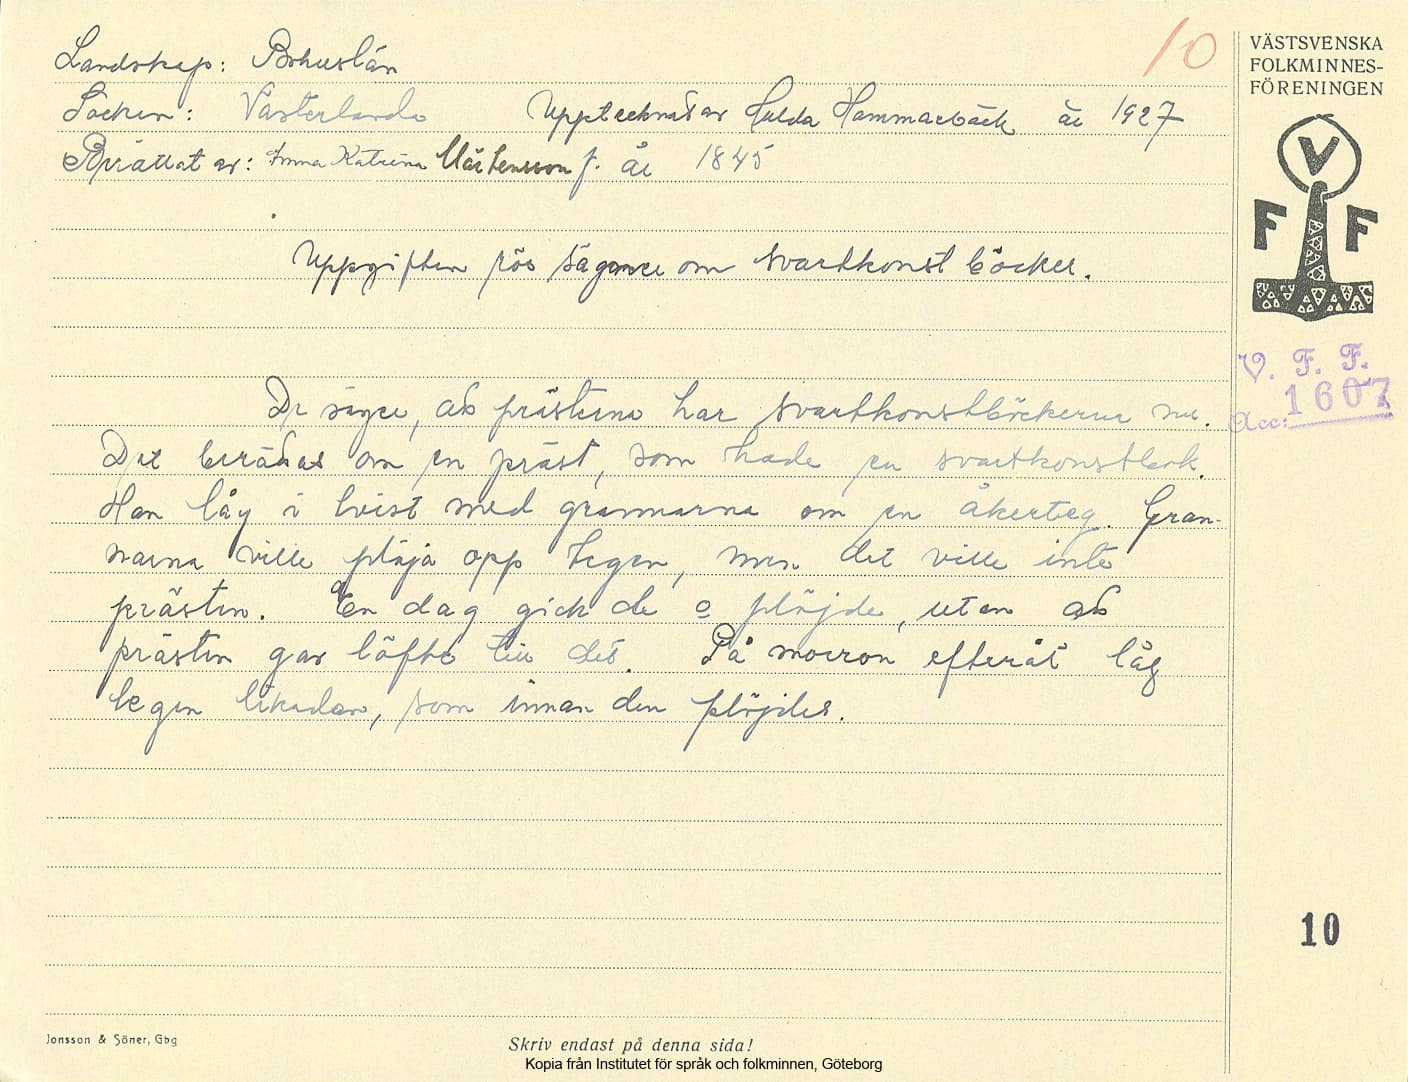 Landskap: Bohuslän
Socken: Västerlanda Upptecknat av Hulda Hammarbäck år 1927
Berättat av: Anna Katrina Mårtensson f. år 1845
10
VÄSTSVENSKA
FOLKMINNES-
FÖRENINGEN
V
F F
V. F. F.
Acc: 1607
Uppgiften rör sägner om svartkonstböcker.
De säger, att prästerna har svartkonstböckerna nu.
Det berättas om en präst, som hade en svartkonstbok.
Han låg i tvist med grannarna om en åkerteg. Gran-
narna ville pläja opp tegen, men det ville inte
prästen. En dag gick de o plöjde, utan att
prästen gav löfte till det. På morron efteråt låg
tegen likadan, som innan den plöjdes.
10
Jonsson & Söner, Gbg
Skriv endast på denna sida!
Kopia från Institutet för språk och folkminnen, Göteborg